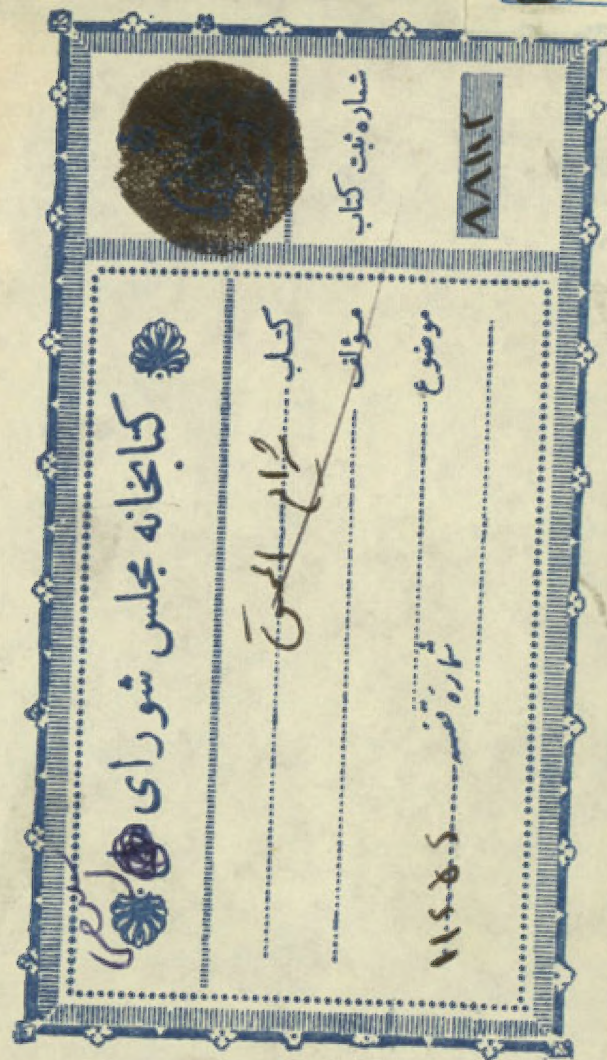 کتابخانه مجلس شورای
اسلامی
کتاب شرایع
مؤلف
موضوع
شماره قفسه ۱۱۶۵۲
شماره ثبت کتاب
۸۸۱۱۲